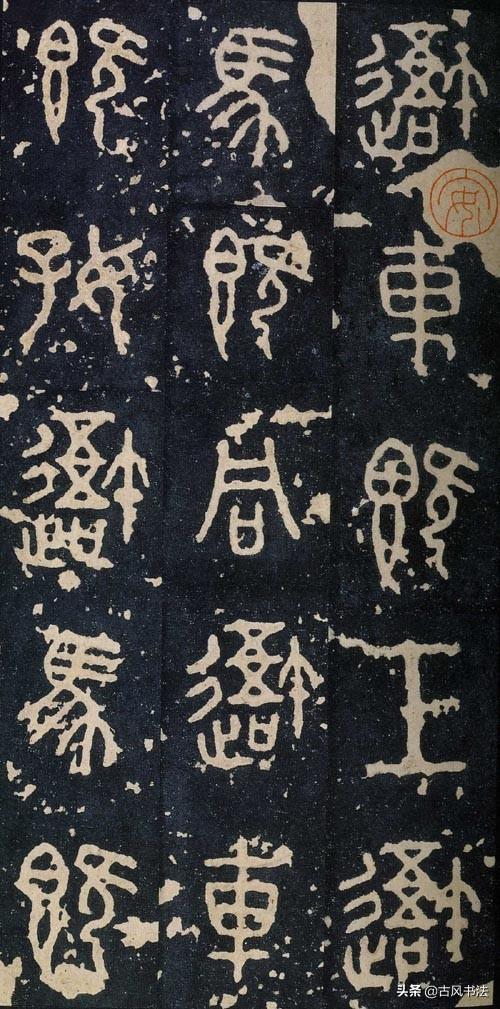 吾車既工吾
馬既同吾車
既好吾馬既
头条 @古风书法